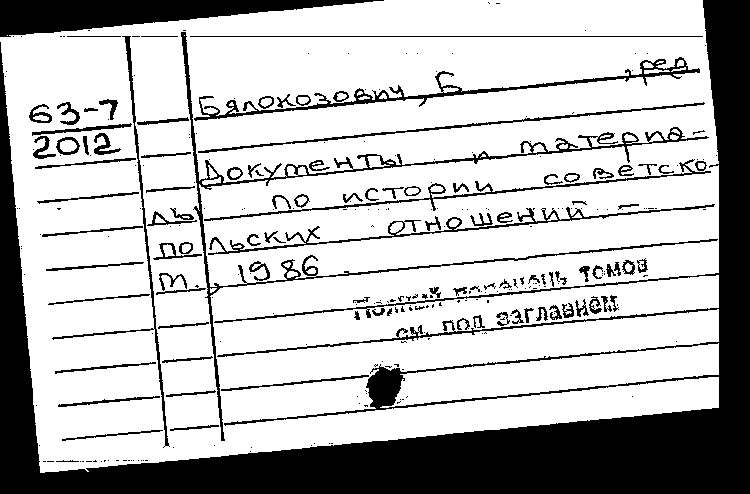 63-7
2012
Бялокозович, Б , ред
Документы и материа-
лы по истории советско-
польских отношений. –
т. , 1986
Полный перечень томов
см. под заглавием